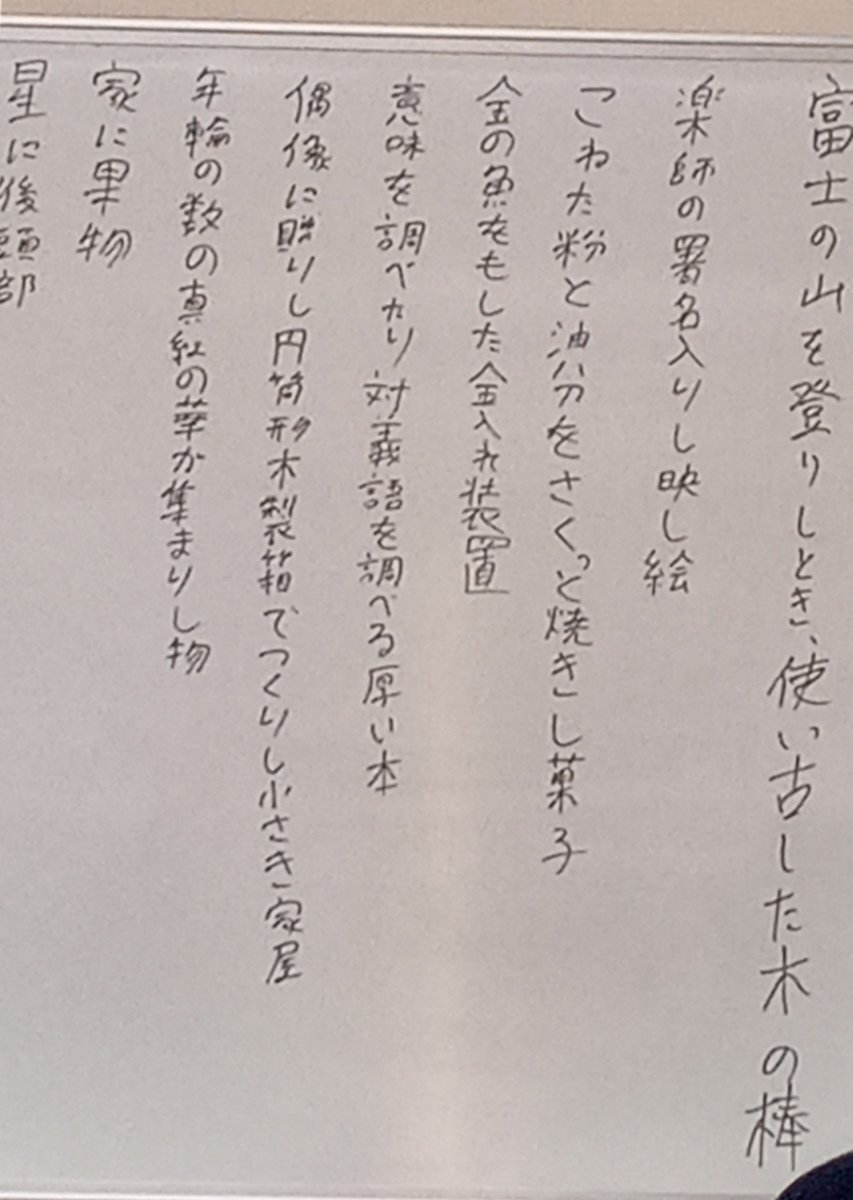 富士の山を登りしとき、使い古した木の棒
楽師の署名入りし映し絵
こねた粉と油分をさくっと焼きし菓子
金の魚をもした金入れ装置
意味を調べたり対義語を調べる厚い本
偶像に贈りし円筒形木製箱でつくりし小さき家屋
年輪の数の真紅の華が集まりし物
家に果物
星に後頭部